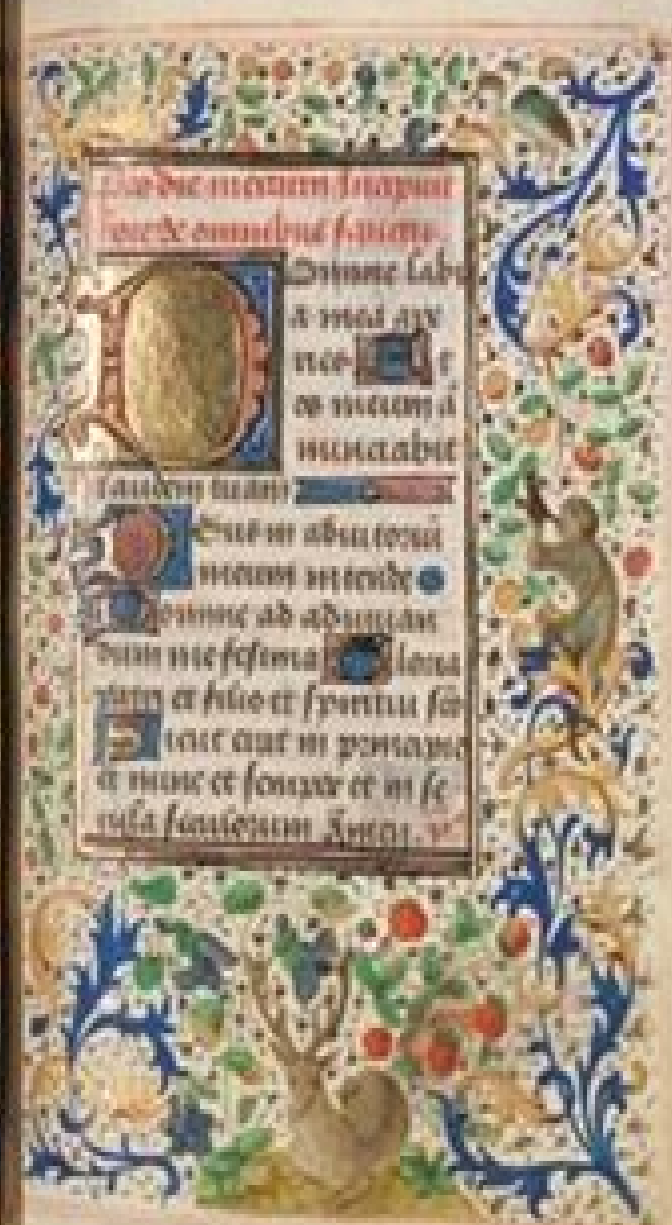 die
hore de omnibus sanctis.
Domine labi
a mea ape
ries Et
os meum a
nunciabit
laudem tuam
Deus in adiutoriū
meum intende
Domine ad adiuuan
dum me festina Gloria
patri et filio et spiritui sco
Sicut erat in principio
et nunc et semper et in se
cula seculorum Amen.